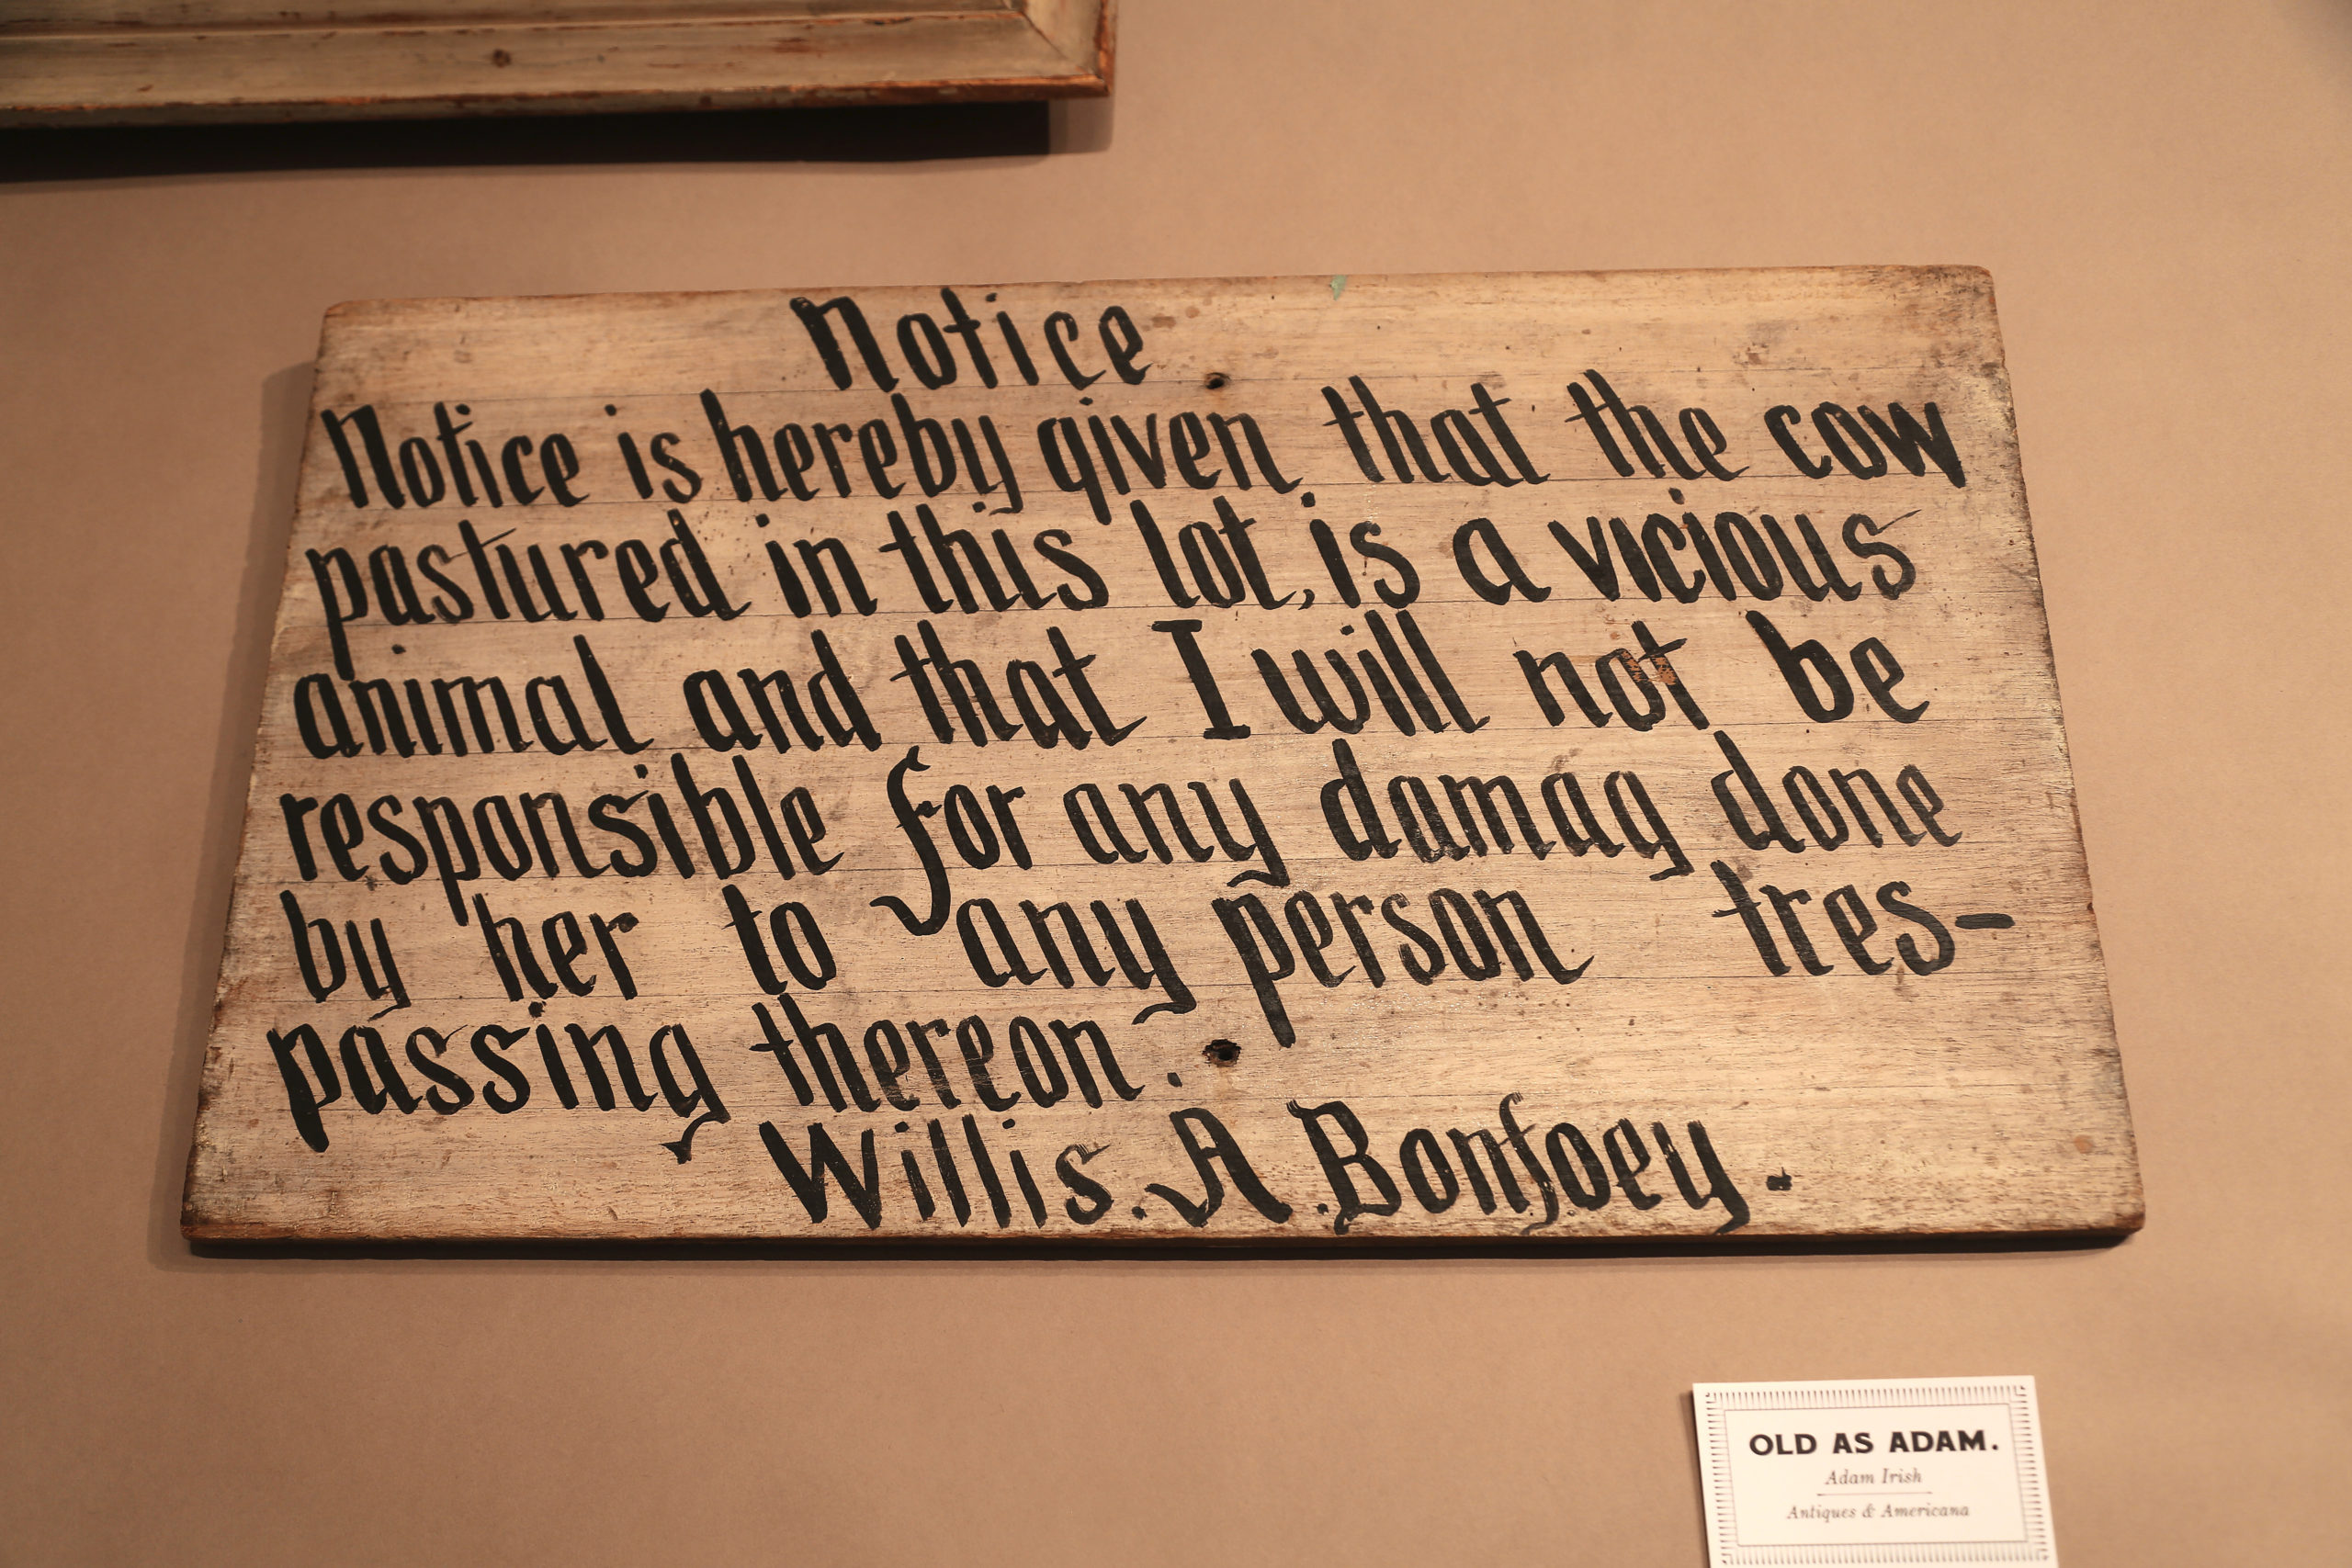 Notice
Notice is hereby given that the cow
pastured in this lot, is a vicious
animal and that I will not be
responsible for any damag done
by her to any person tres-
passing thereon.
Willis. A. Bonfoey.
OLD AS ADAM.
Adam Irish
Antiques & Americana